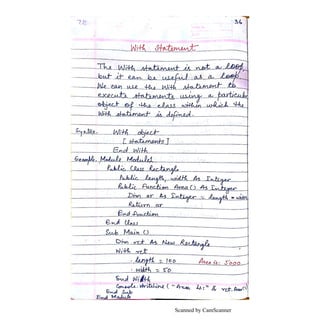 72
34
With Statement
The With statement is not a loop,
but it can be useful as a loop.
We can use the With statement to
execute statements using a particular
object of the class within which the
With statement is defined.
Syntax. With object
[statements]
End With
Example. Module Module1
Public Class Rectangle
Public length, width As Integer
Public Function Area() As Integer
Dim ar As Integer = length * width
Return ar
End Function
End Class
Sub Main()
Dim rct As New Rectangle
With rct
.length = 100
Area is: 5000
.width = 50
End With
Console.WriteLine("Area is:" & rct.Area())
End Sub
End Module
Scanned by CamScanner